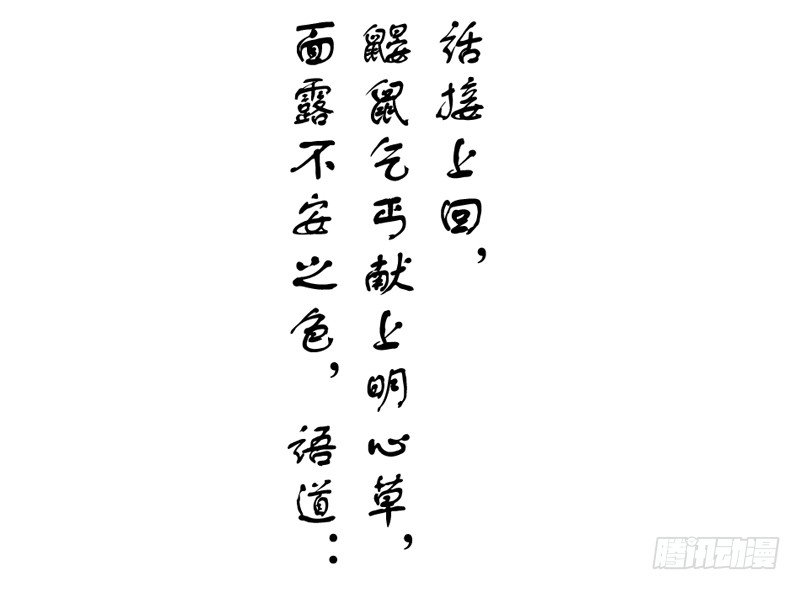 话接上回，
鼹鼠乞丐献上明心草，
面露不安之色，语道：
腾讯动漫